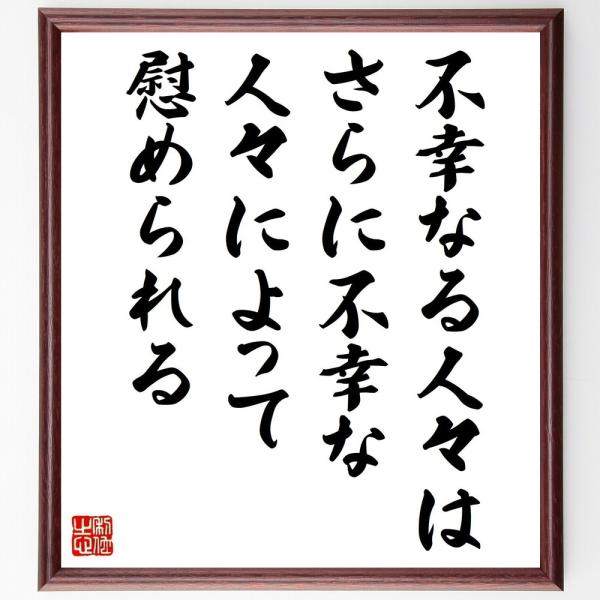 不幸なる人々は
さらに不幸な
人々によって
慰められる